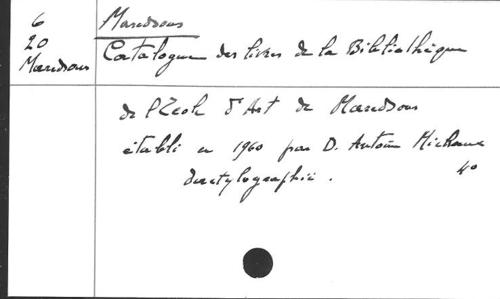 6
20
Maredsous
Maredsous
Catalogue des livres de la Bibliothèque
de l'Ecole d'Art de Maredsous
établi en 1960 par D. Antoine
dactylographié.
4°